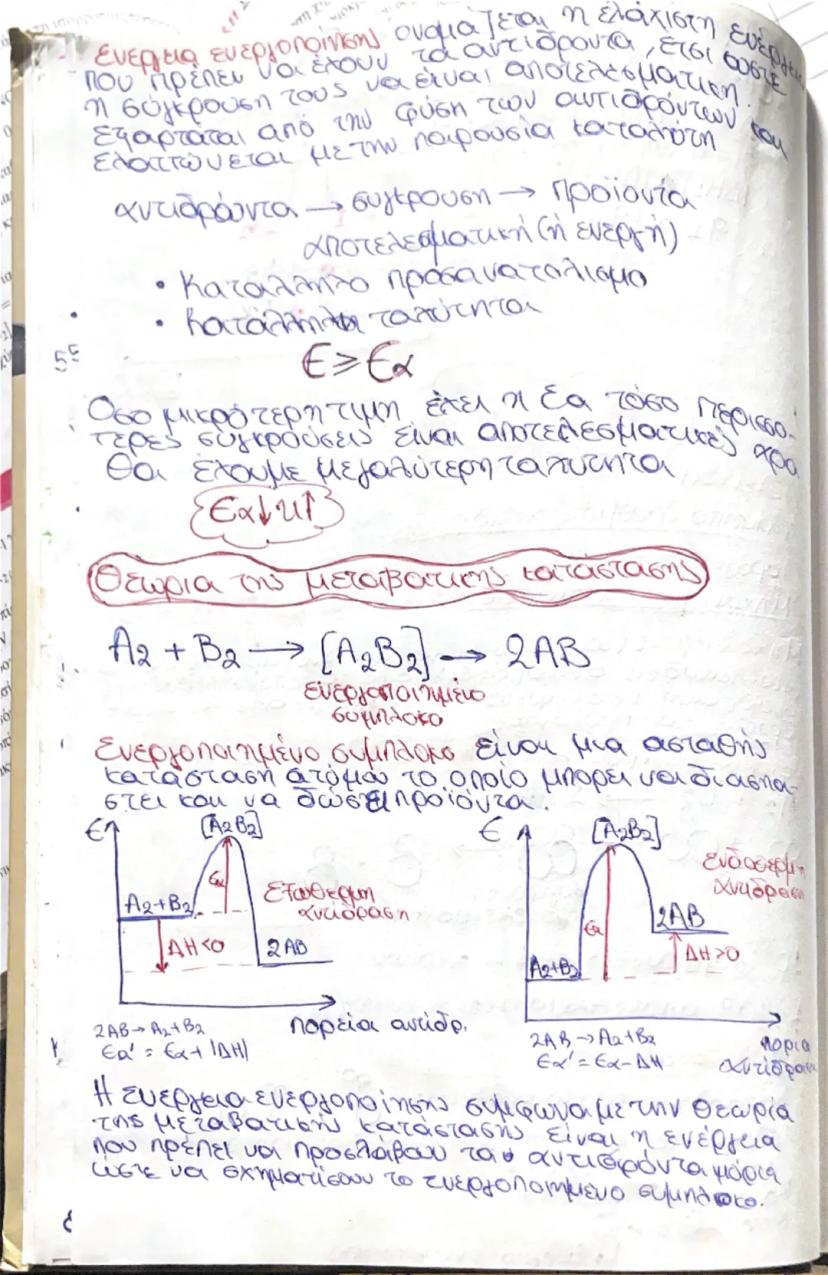 Ενέργεια ενεργοποίησης ονομάζεται η ελάχιστη ενέργεια
που πρέπει να έχουν τα αντιδρόντα, έτσι ώστε
η σύγκρουση τους να είναι αποτελεσματική.
Εξαρτάται από την φύση των αντιδρόντων και
ελαττώνεται με την παρουσία καταλύτη
αντιδρώντα → συγκρουση → προϊοντα
αποτελεσματική (ή ενεργή)
• Καταλληλο προσανατολισμο
• Κατάλληλη ταχύτητα
Ε ≥ Εα
Οσο μικρότερη τιμη έχει η Εα τόσο περισσο-
τερες συγκρούσεις είναι αποτελεσματικές αρα
θα έχουμε μεγαλύτερη ταχυτητα
Εα↓ u↑
Θεωρια της μεταβατικης κατάστασης
A2 + B2 → [A2B2] → 2AB
ενεργοποιημένο
συμπλοκο
Ενεργοποιημένο συμπλοκο είναι μια ασταθής
κατάσταση ατόμων το οποίο μπορει να διασπα-
στει και να δώσει προϊόντα.
Ε [A2B2]
A2+B2
Εα
Εξωθερμη
αντίδραση
ΔΗ<0
2AB
πορεία αντιδρ.
2AB → A2+B2
Εα' = Εα + |ΔΗ|
Ε [A2B2]
Ενδοθερμη
αντιδραση
Εα
2AB
A2+B2
ΔΗ>0
πορια
αντιδραση
2AB → A2+B2
Εα' = Εα - ΔΗ
Η ενέργεια ενεργοποίησης συμφωνα με την θεωρία
της μεταβατικής κατάστασης είναι η ενέργεια
που πρέπει να προσλάβουν τα αντιδρόντα μόρια
ώστε να σχηματίσουν το ενεργοποιημενο συμπλοκο.